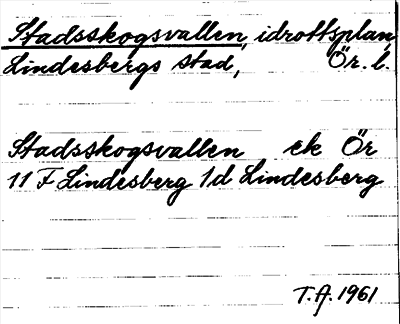 Stadsskogsvallen, idrottsplan,
Lindesbergs stad, Ör. l.
Stadsskogsvallen ek Ör
11 F Lindesberg 1d Lindesberg
T.A. 1961